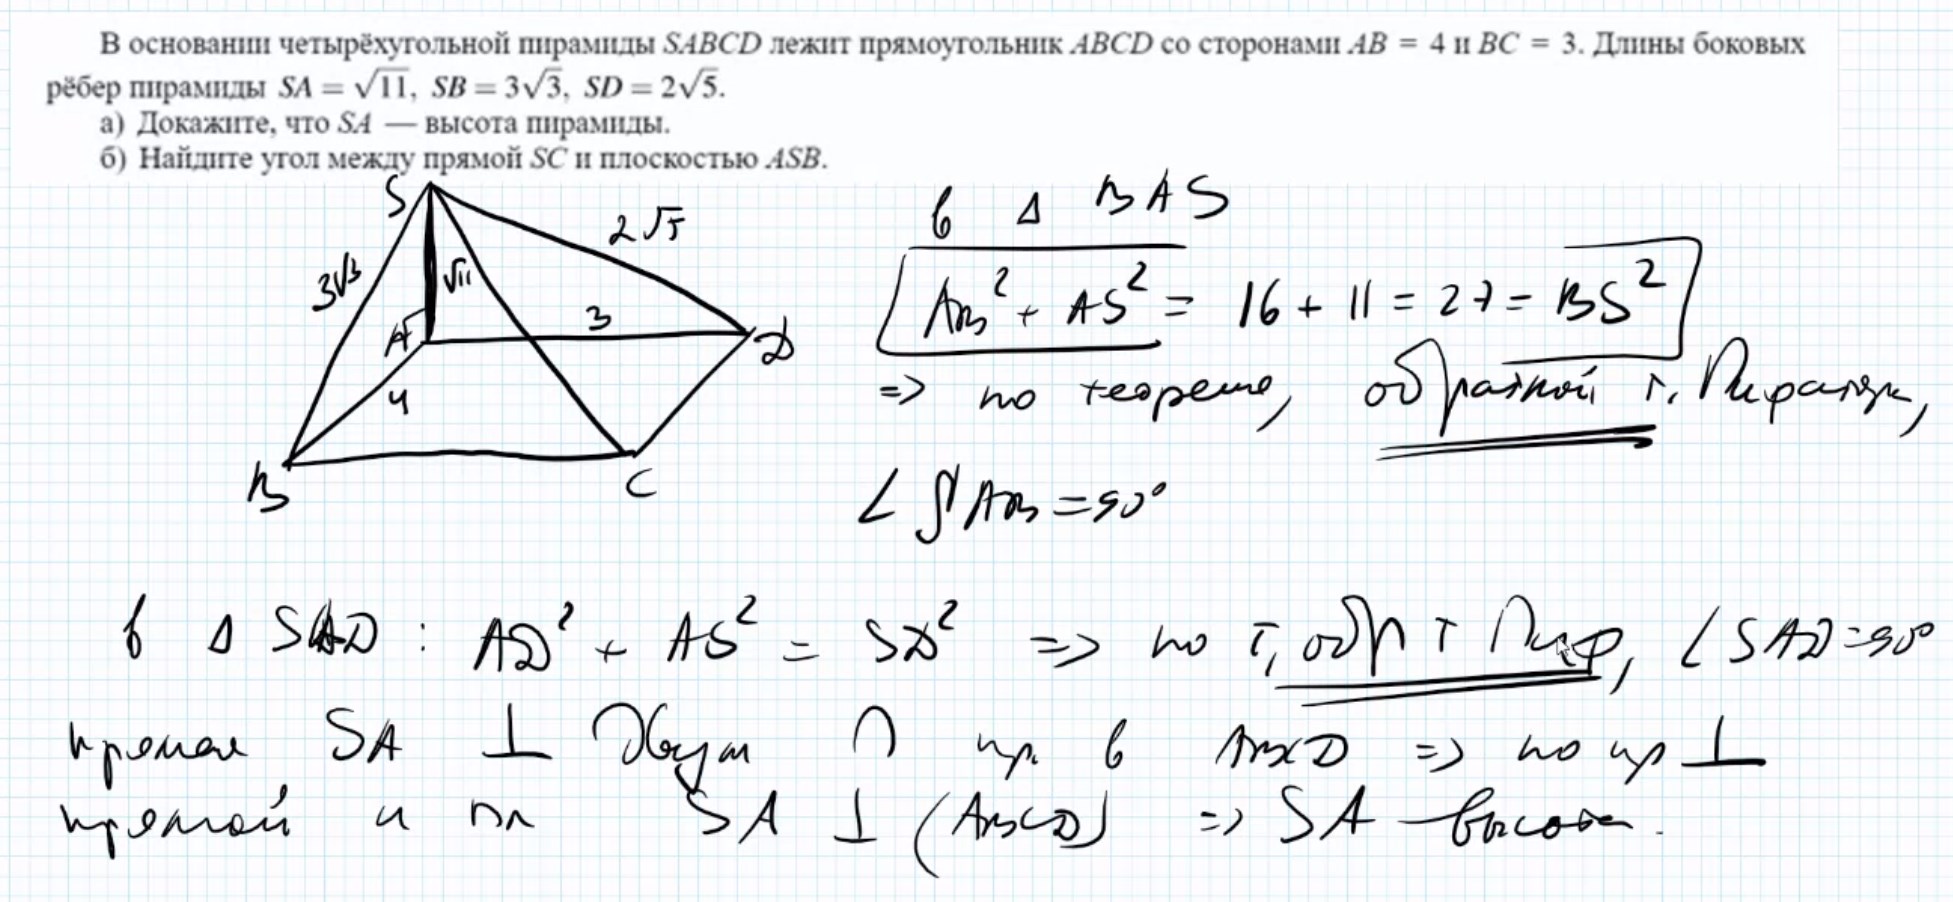 В основании четырёхугольной пирамиды SABCD лежит прямоугольник ABCD со сторонами AB = 4 и BC = 3. Длины боковых
рёбер пирамиды SA = √11, SB = 3√3, SD = 2√5.
а) Докажите, что SA — высота пирамиды.
б) Найдите угол между прямой SC и плоскостью ASB.
S
2√5
3√3
√11
A
3
D
4
B
C
в Δ BAS
AB² + AS² = 16 + 11 = 27 = BS²
=> по теореме, обратной т. Пифагора,
∠ SAB = 90°
в Δ SAD : AD² + AS² = SD² => по т, обр т Пиф, ∠ SAD = 90°
прямая SA ⊥ двум ∩ пр. в ABCD => по пр ⊥
прямой и пл SA ⊥ (ABCD) => SA — высота.